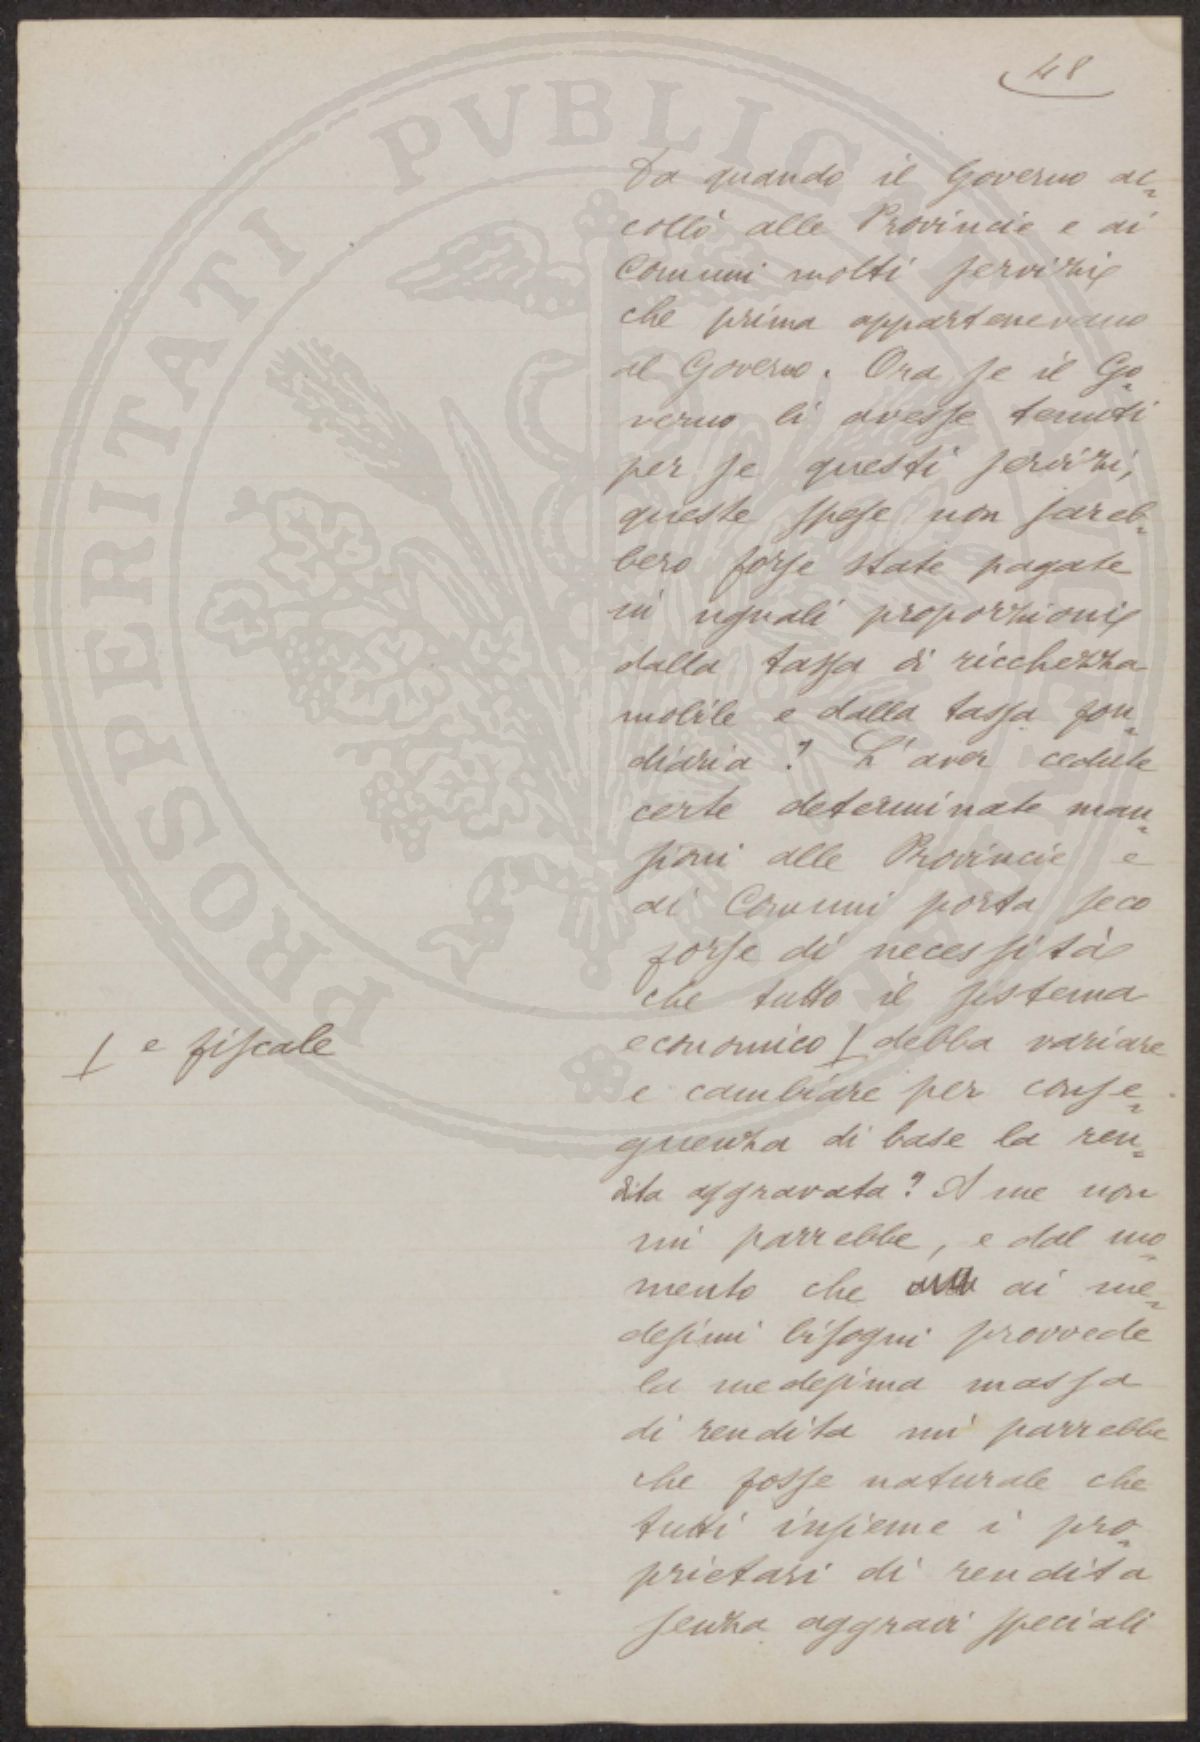 48
Da quando il Governo ac-
collò alle Provincie e ai
Comuni molti servizi
che prima appartenevano
al Governo. Ora se il Go-
verno li avesse tenuti
per se questi servizi,
queste spese non sareb-
bero forse state pagate
in uguali proporzioni
dalla tassa di ricchezza
mobile e dalla tassa fon-
diaria? L'aver cedute
certe determinate man-
sioni alle Provincie e
ai Comuni porta seco
forse di necessità
che tutto il sistema
economico / debba variare
/ e fiscale
e cambiare per conse-
guenza di base la ren-
dita aggravata? A me non
mi parrebbe, e dal mo-
mento che ai me-
desimi bisogni provvede
la medesima massa
di rendita mi parrebbe
che fosse naturale che
tutti insieme i pro-
prietari di rendita
senza aggravi speciali
PROSPERITATI PVBLICAE AVGENDAE